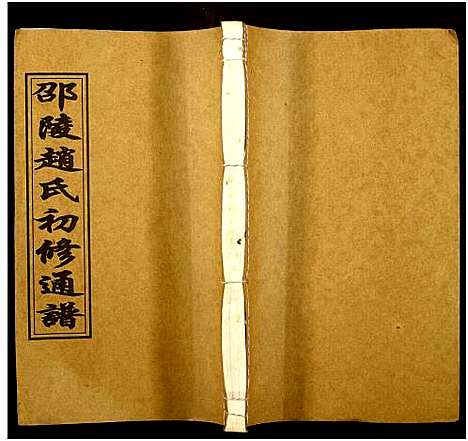 邵陵趙氏初修通譜